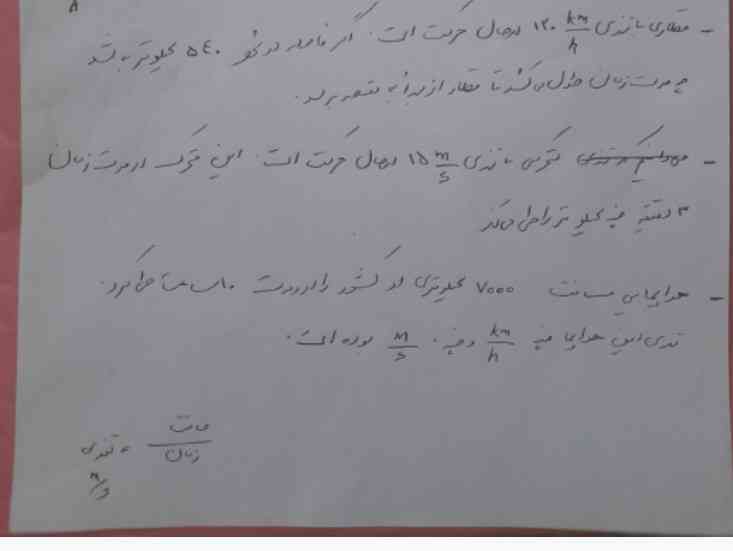 - قطاری با تندی ۱۲۰ km/h در حال حرکت است. اگر فاصله دو شهر ۵۴۰ کیلومتر باشد
چه مدت زمان طول می‌کشد تا قطار از مبدأ به مقصد برسد.
- متحرکی با تندی ۱۵ m/s در حال حرکت است. این متحرک در مدت زمان
۳ دقیقه چند کیلومتر را طی می‌کند
- هواپیمایی مسافت ۷۰۰۰ کیلومتری دو کشور را در مدت ۱۰ ساعت طی کرد.
تندی این هواپیما چند km/h و چند m/s بوده است.
مسافت
زمان = تندی
m/s